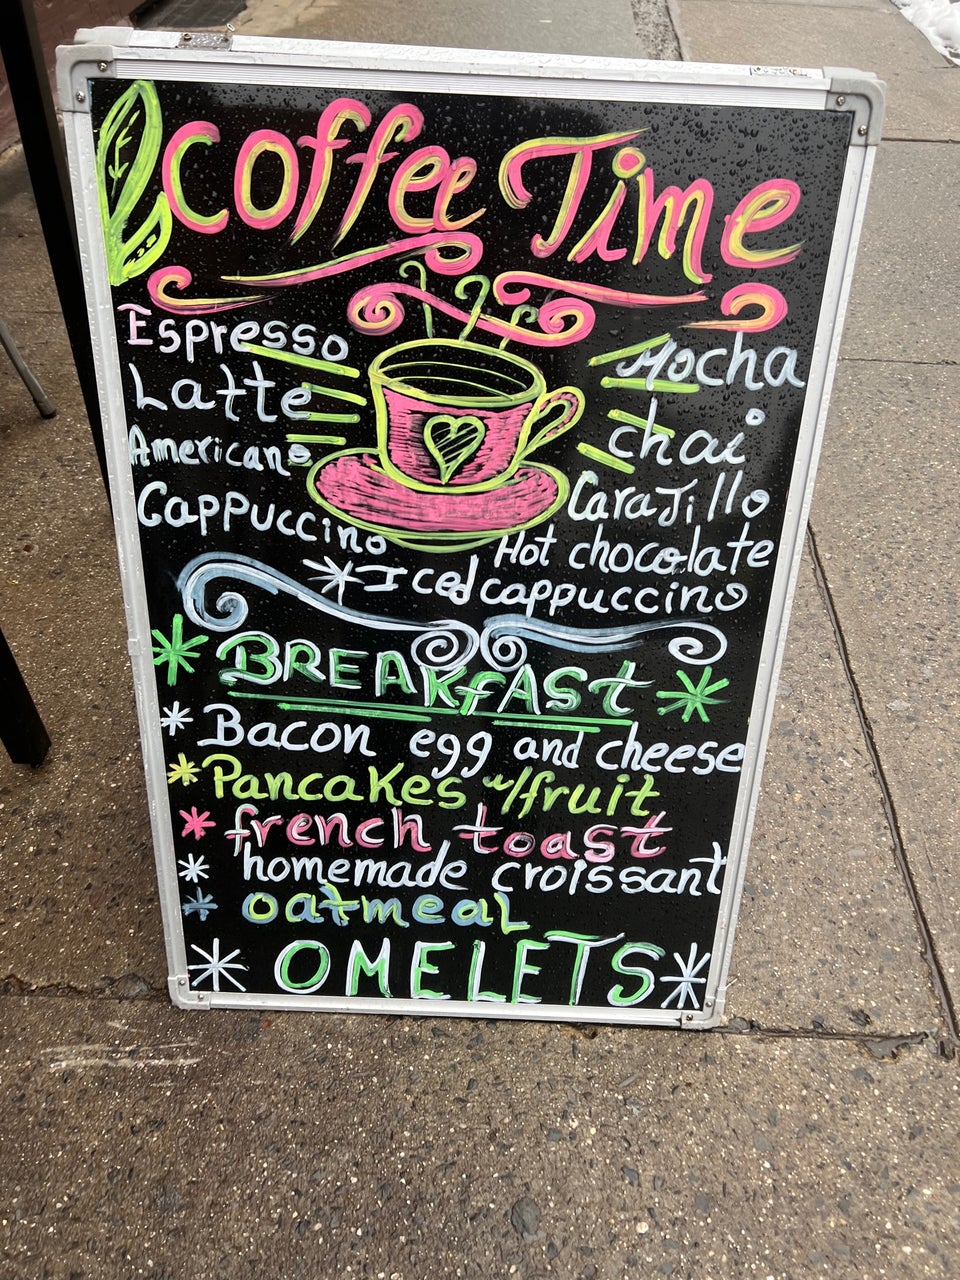 Coffee Time
Espresso
Latte
Americano
Cappuccino
Mocha
chai
Carajillo
Hot chocolate
*Iced cappuccino
* BREAKfASt *
* Bacon egg and cheese
* Pancakes w/fruit
* french toast
* homemade croissant
* oatmeaL
* OMELETS *